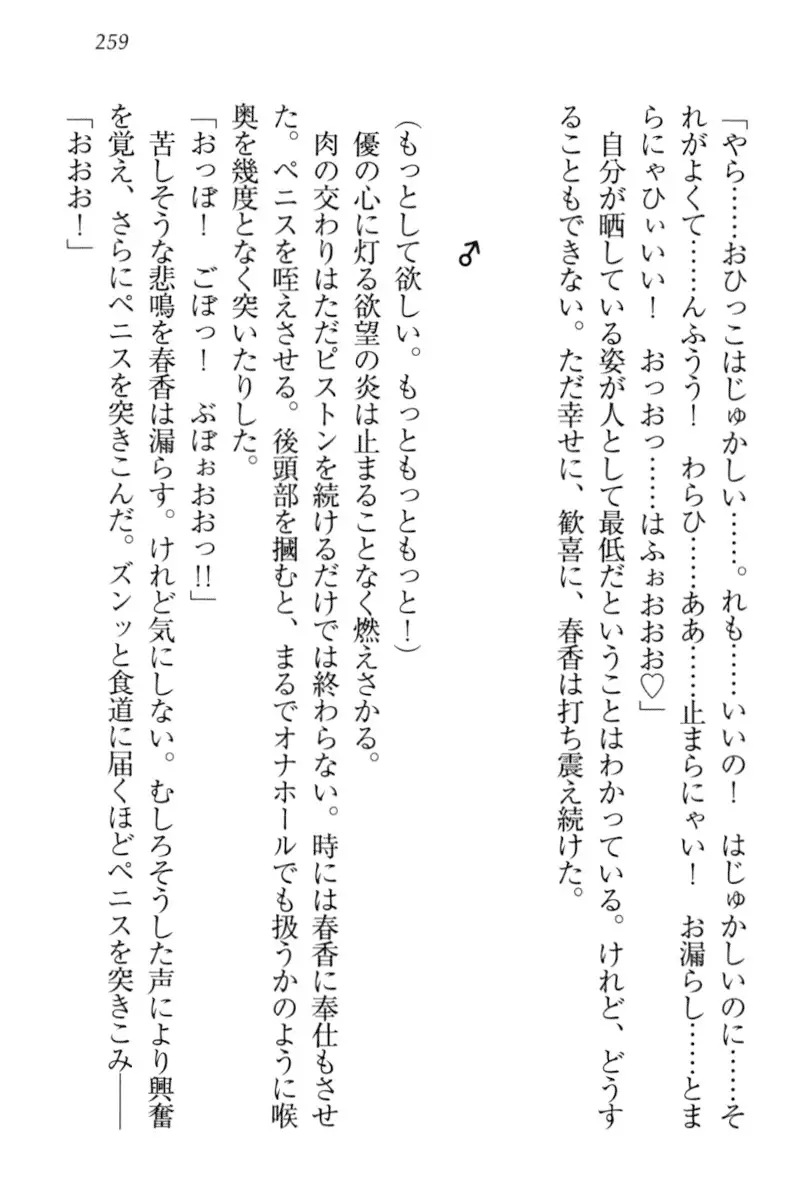 259
「やら……おひっこはじゅかしい……。れも……いいの！　はじゅかしいのに……そ
れがよくて……んふうう！　わらひ……ああ……止まらにゃい！　お漏らし……とま
らにゃひぃいい！　おっおっ……はふぉおおお♡」
　自分が晒している姿が人として最低だということはわかっている。けれど、どうす
ることもできない。ただ幸せに、歓喜に、春香は打ち震え続けた。
♂
（もっとして欲しい。もっともっともっと！）
　優の心に灯る欲望の炎は止まることなく燃えさかる。
　肉の交わりはただピストンを続けるだけでは終わらない。時には春香に奉仕もさせ
た。ペニスを咥えさせる。後頭部を摑むと、まるでオナホールでも扱うかのように喉
奥を幾度となく突いたりした。
「おっぽ！　ごぼっ！　ぶぼぉおおっ!!」
　苦しそうな悲鳴を春香は漏らす。けれど気にしない。むしろそうした声により興奮
を覚え、さらにペニスを突きこんだ。ズンッと食道に届くほどペニスを突きこみ――
「おおお！」